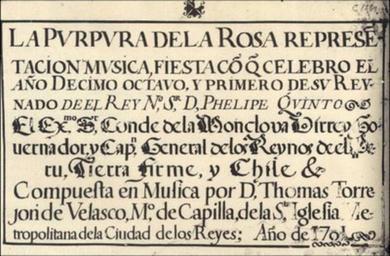 LA PVRPVRA DE LA ROSA REPRESE
TACION MVSICA, FIESTA CÕ Q̃ CELEBRO EL
AÑO DECIMO OCTAVO, Y PRIMERO DE SV REY
NADO DE EL REY Nº. Sr. D, PHELIPE QVINTO
El Exmo. Sr. Conde de la Monclova Virrey Go
vernador, y Capn. General de los Reynos de el
ru, Tierra firme, y Chile &
Compuesta en Musica por D. Thomas Torre
jon de Velasco, Mº. de Capilla, de la Sta. Iglesia
etropolitana de la Ciudad de los Reyes; Año de 1701